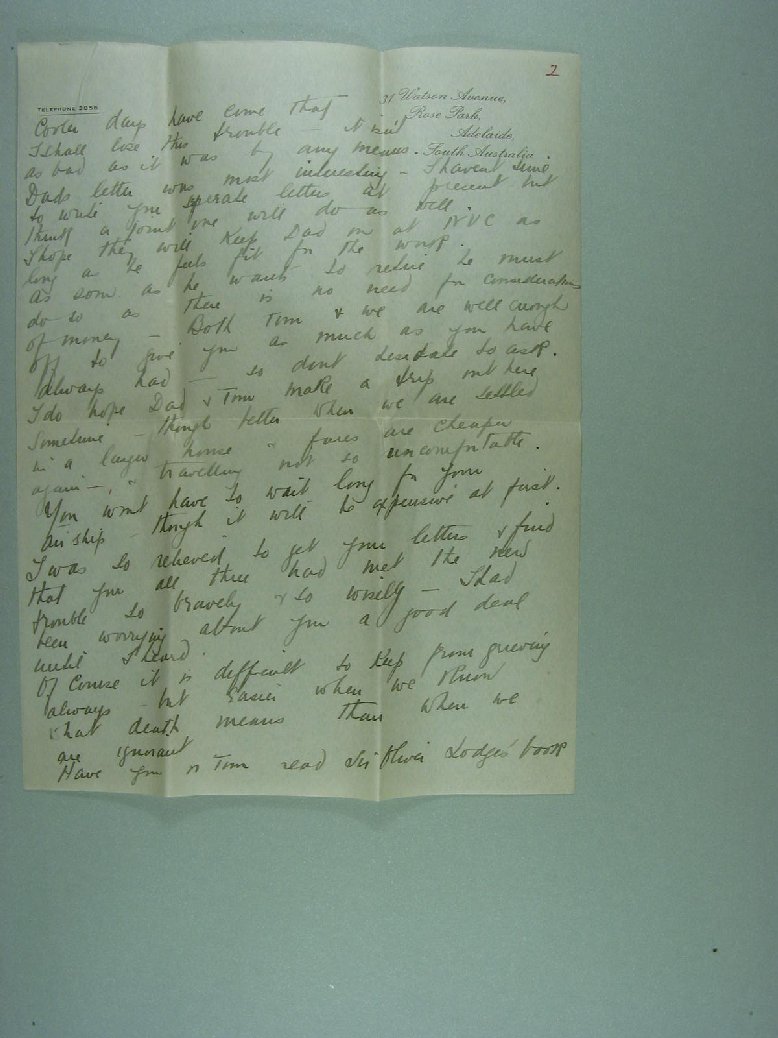 7
TELEPHONE 2056
31 Watson Avenue,
Rose Park,
Adelaide,
South Australia.
Cooler days have come that
I shall lose this trouble – it isn't
as bad as it was by any means.
Dads letter was most interesting – I havent time
to write you seperate letters at present but
think a joint one will do as well.
I hope they will keep Dad on at NVC as
long as he feels fit for the work.
As soon as he wants to retire he must
do so as there is no need for consideration
of money – Both Tom & we are well enough
off to give you as much as you have
always had – so dont hesitate to ask.
I do hope Dad & Tom make a trip out here
sometime – though better when we are settled
in a larger house " fares are cheaper
again –, " travelling not so uncomfortable.
You wont have to wait long for your
airship – though it will be expensive at first.
I was so relieved to get your letters & find
that you all three had met the new
trouble so bravely & so wisely – I had
been worrying about you a good deal
until I heard.
Of course it is difficult to keep from grieving
always – but easier when we know
what death means than when we
are ignorant
Have you or Tom read Sir Oliver Lodge's book